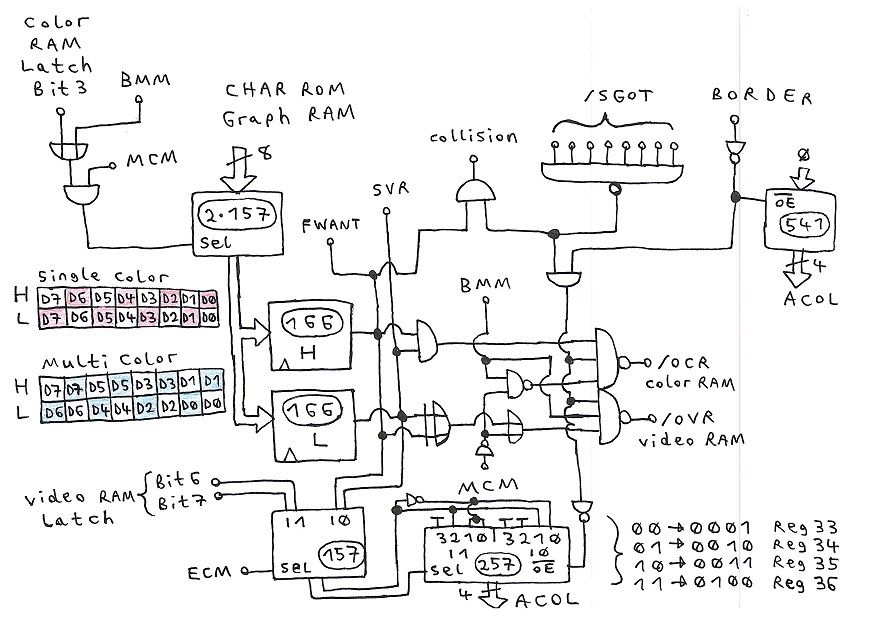 Color
RAM
Latch
Bit3
BMM
MCM
CHAR ROM
Graph RAM
8
2·157
sel
collision
/SGOT
BORDER
0
OE
541
4
ACOL
SVR
FWANT
Single Color
H D7 D6 D5 D4 D3 D2 D1 D0
L D7 D6 D5 D4 D3 D2 D1 D0
Multi Color
H D7 D7 D5 D5 D3 D3 D1 D1
L D6 D6 D4 D4 D2 D2 D0 D0
166
H
166
L
BMM
/OCR
color RAM
/OVR
video RAM
MCM
video RAM
Latch
Bit6
Bit7
I1 I0
157
sel
ECM
3210 3210
I1 I0
sel 257 OE
4
ACOL
00→0001 Reg 33
01→0010 Reg 34
10→0011 Reg 35
11→0100 Reg 36